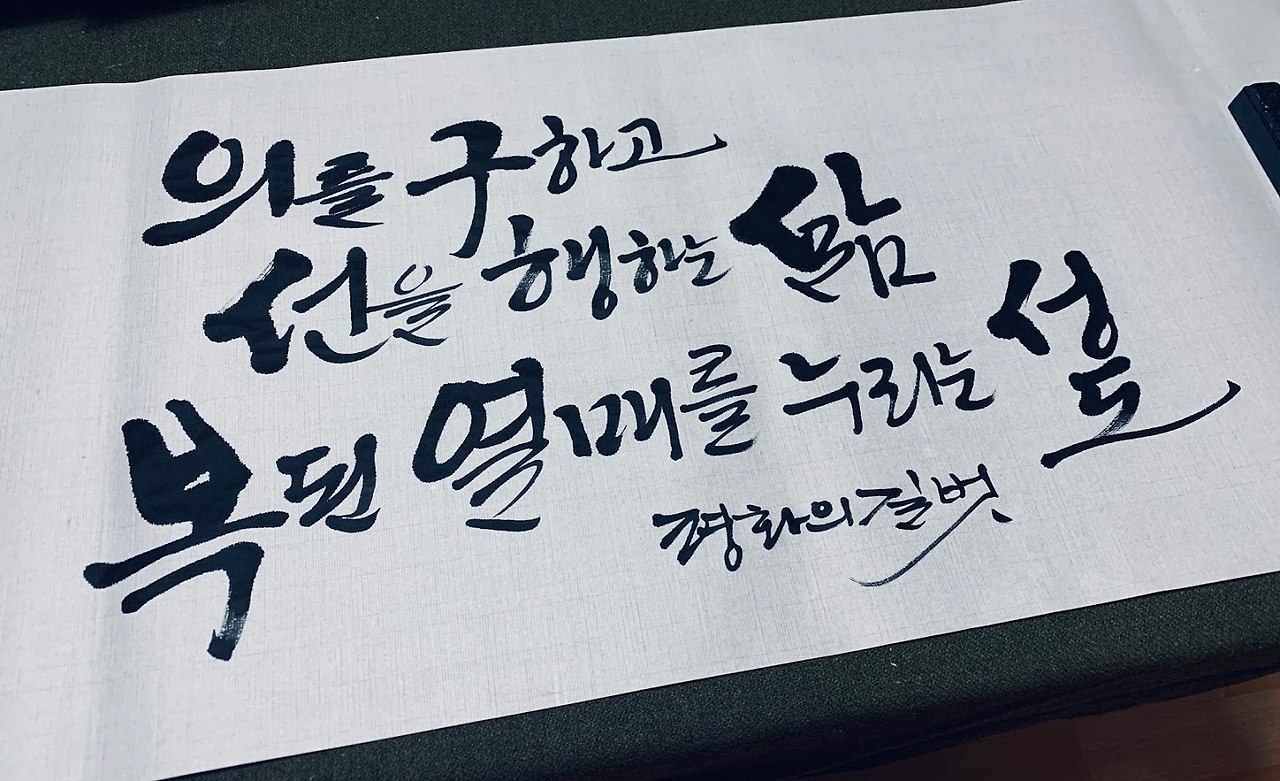 의를 구하고
선을 행하는 삶
복된 열매를 누리는 성도
평화의 길벗